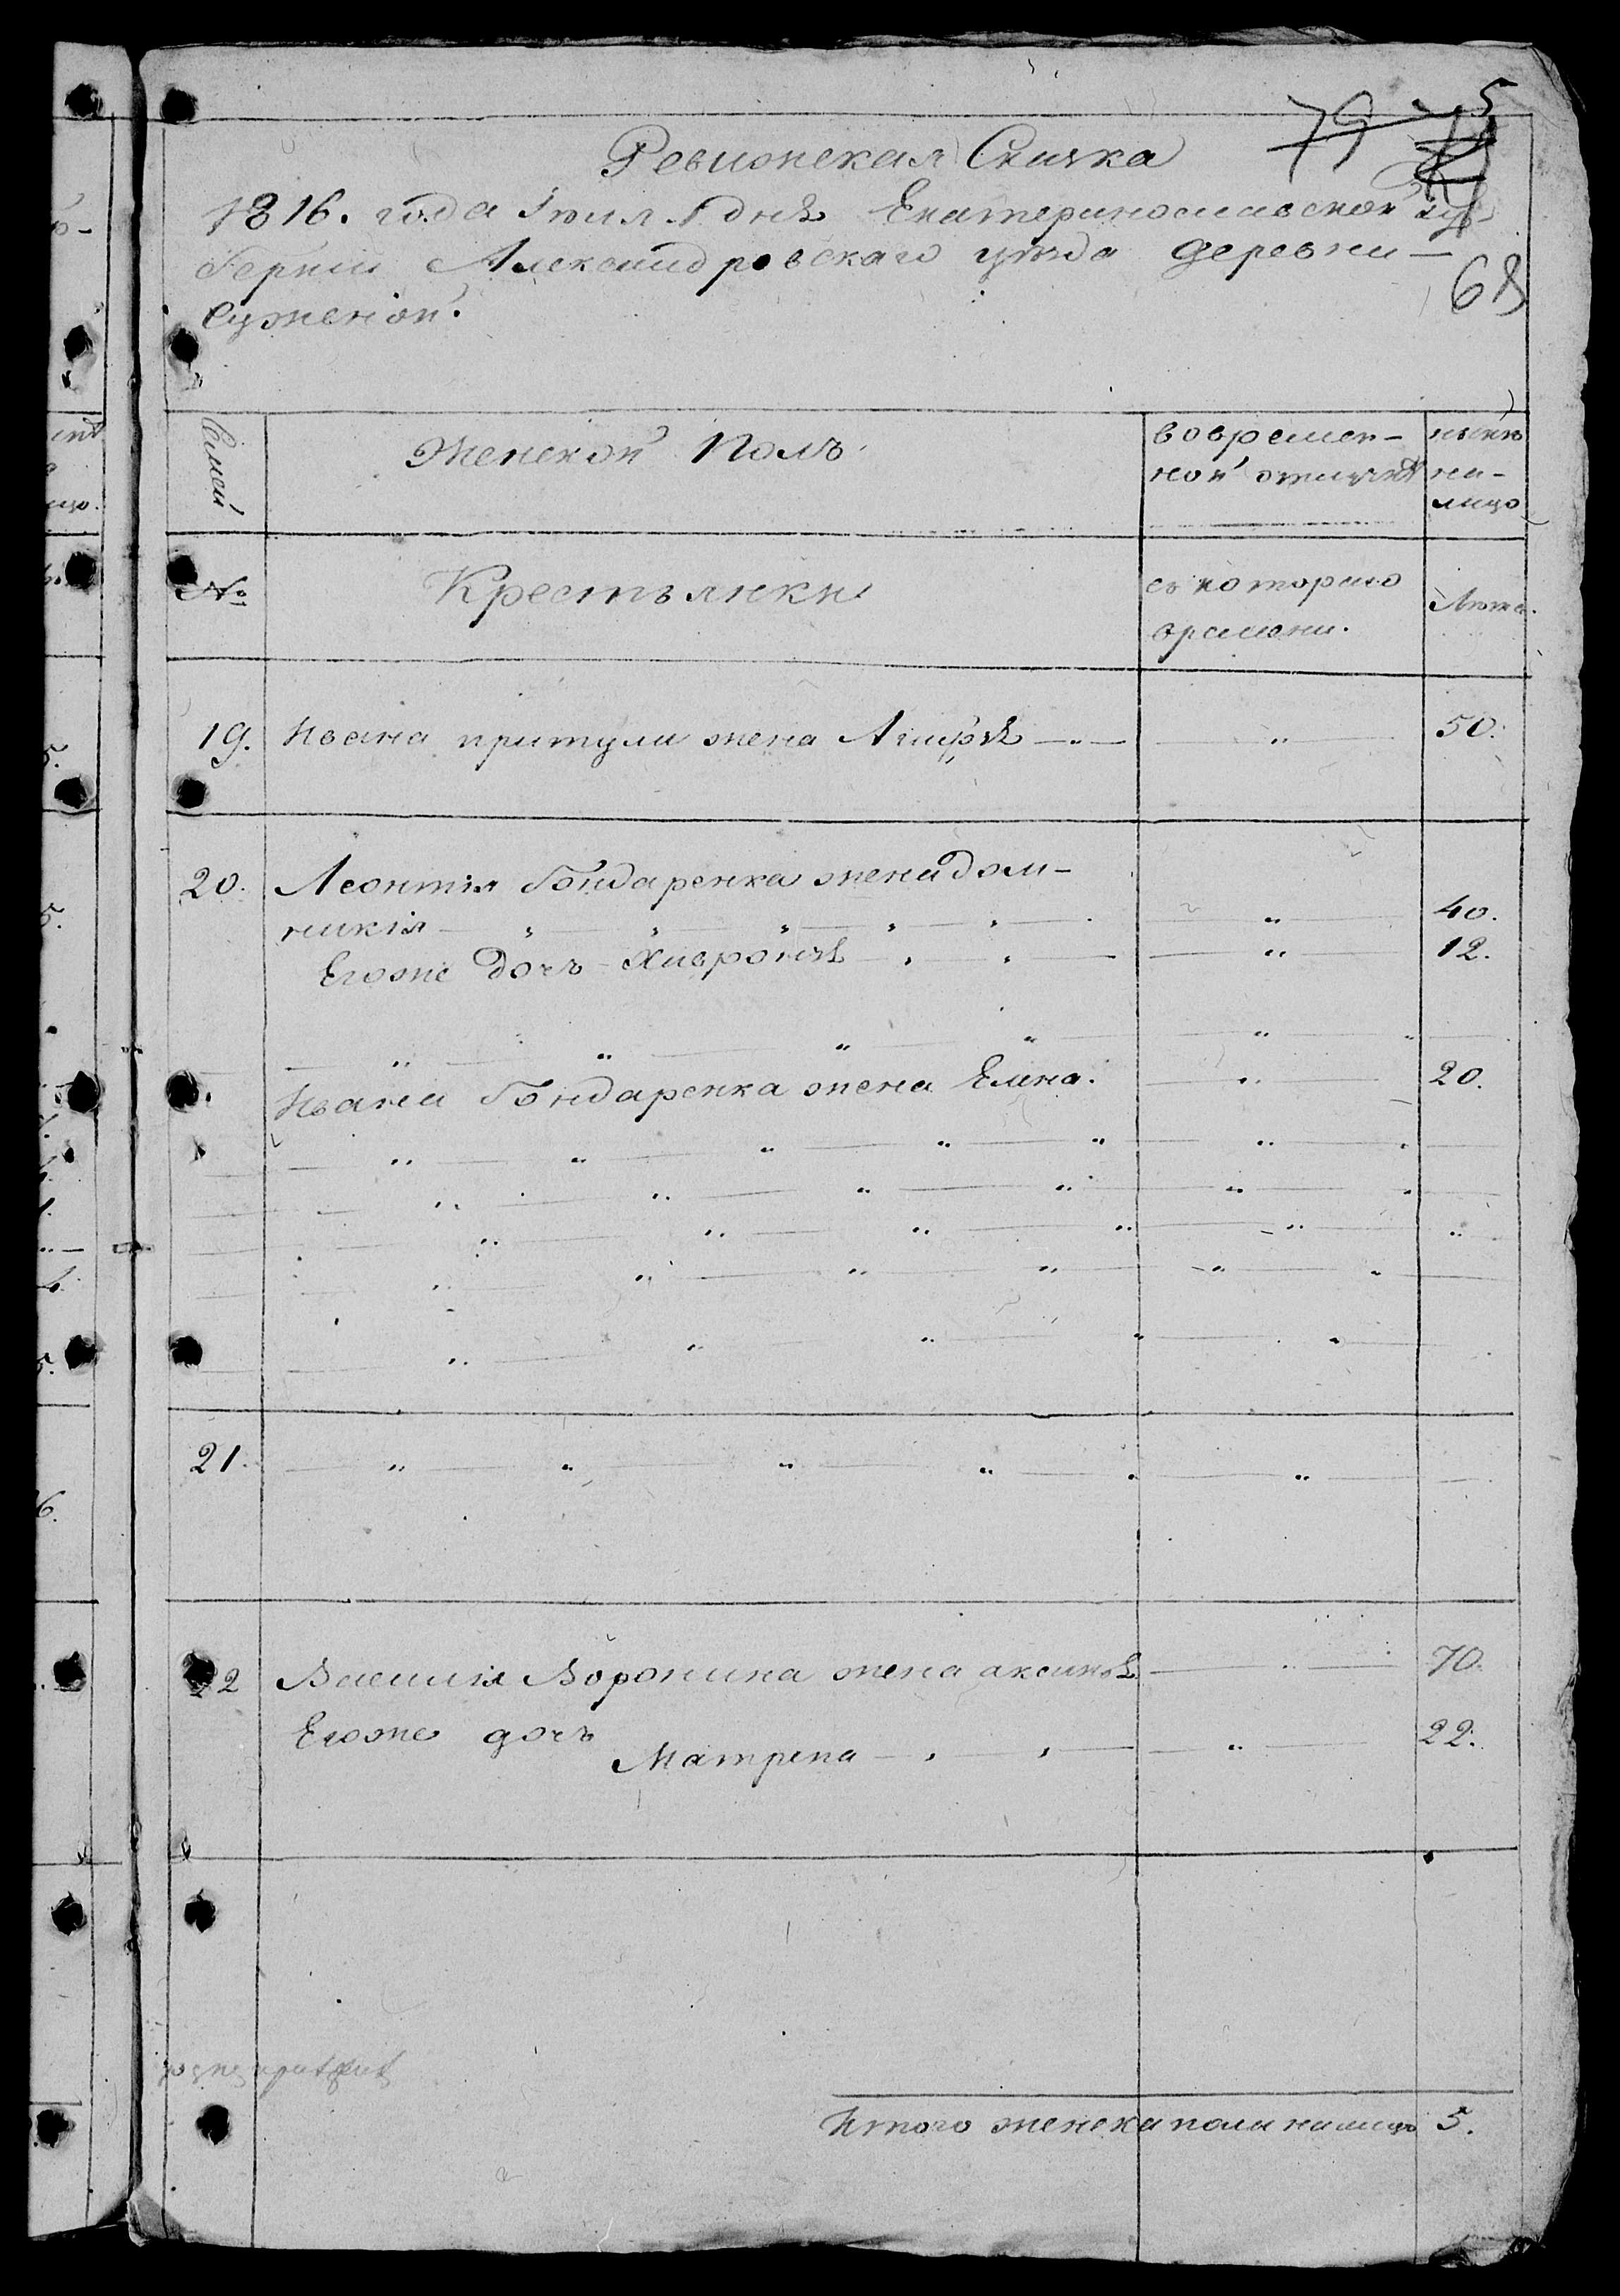 79 5
Ревижская Скаска
1816. года Июля 1 дня Екатеринославской гу-
берніи Александровскаго уѣзда деревни —
Суженой.
68
Семей
Женской Полъ
вовремен-
ной отлучкѣ
нынѣ
на-
лицо
№
Крестьянки
съ котораго
времени.
Лѣта.
19. Ивана притули жена — " — " 50.
20. Леонтія Бондаренка жена дом-
никія — " — " — " — " 40.
Егоже дочь Хивронѣ — " — " 12.
Ивана Бондаренка жена Елена. " 20.
21. — " — " — " — "
22 Василія Воронина жена аксинья — " — 70.
Егоже дочь
Матрена — " — " — " 22.
Итого женска пола налицо 5.